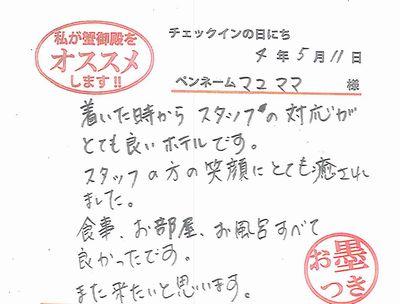 私が蟹御殿を
オススメ
します!!
チェックインの日にち
4年5月11日
ペンネーム マユママ 様
着いた時から スタッフの対応が
とても良いホテルです。
スタッフの方の笑顔にとても癒され
ました。
食事、お部屋、お風呂すべて
良かったです。
また来たいと思います。
お墨
つき